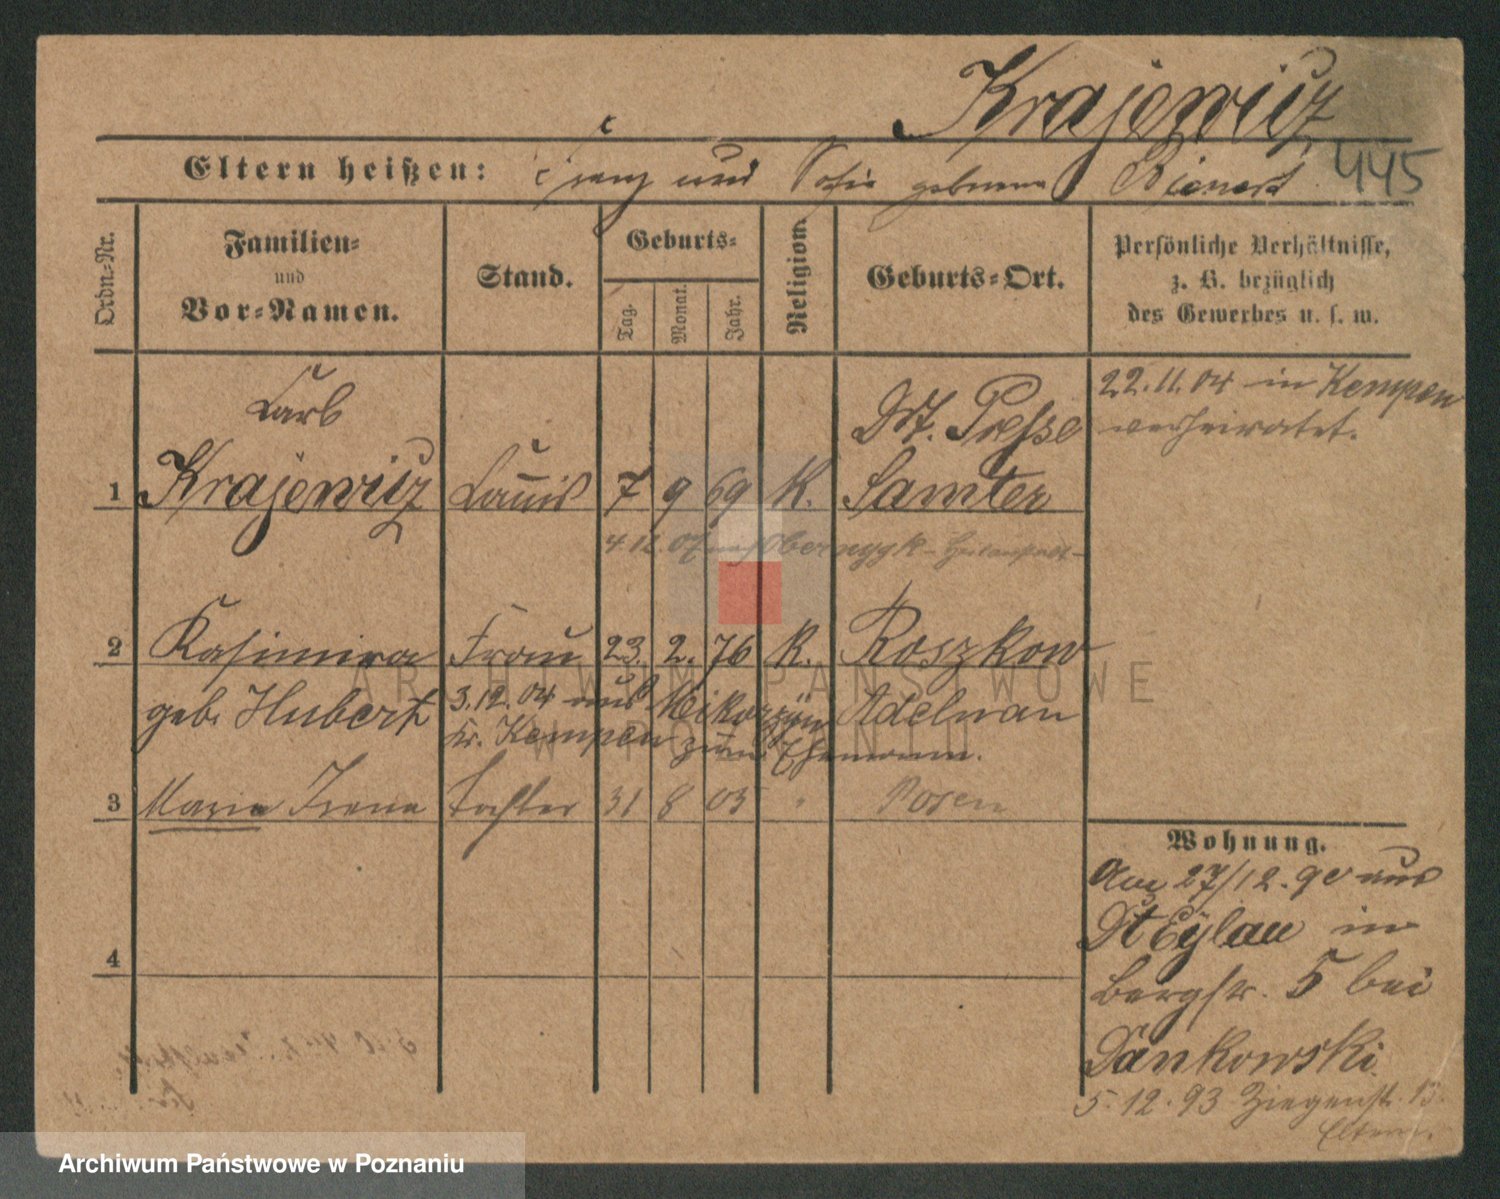 Krajewicz
Eltern heißen: Franz und Sofie geborene Bienert 445
Ordn=Nr.
Familien=
und
Vor=Namen.
Stand.
Geburts=
Tag.
Monat.
Jahr.
Religion.
Geburts=Ort.
Persönliche Verhältnisse,
z. B. bezüglich
des Gewerbes u. s. w.
22.11.04 in Kempen
verheiratet.
1 Krajewicz 7 9 69 K. Samter
4.12.07 nach Obernygk - Heilanstalt -
2 Kasimira Frau 23. 2. 76 K. Roszkow
geb. Hubert Adelnau
3.12.04 aus Mikorzyn
Kr. Kempen zum Ehemann.
3 Maria Irene Tochter 31 8 05 " Posen
4
Wohnung.
27/12.90 aus
Dt Eylau in
Bergstr. 5 bei
Dankowski.
5.12.93 Ziegenstr. 13.
Eltern.
ARCHIWUM PAŃSTWOWE
W POZNANIU
Archiwum Państwowe w Poznaniu